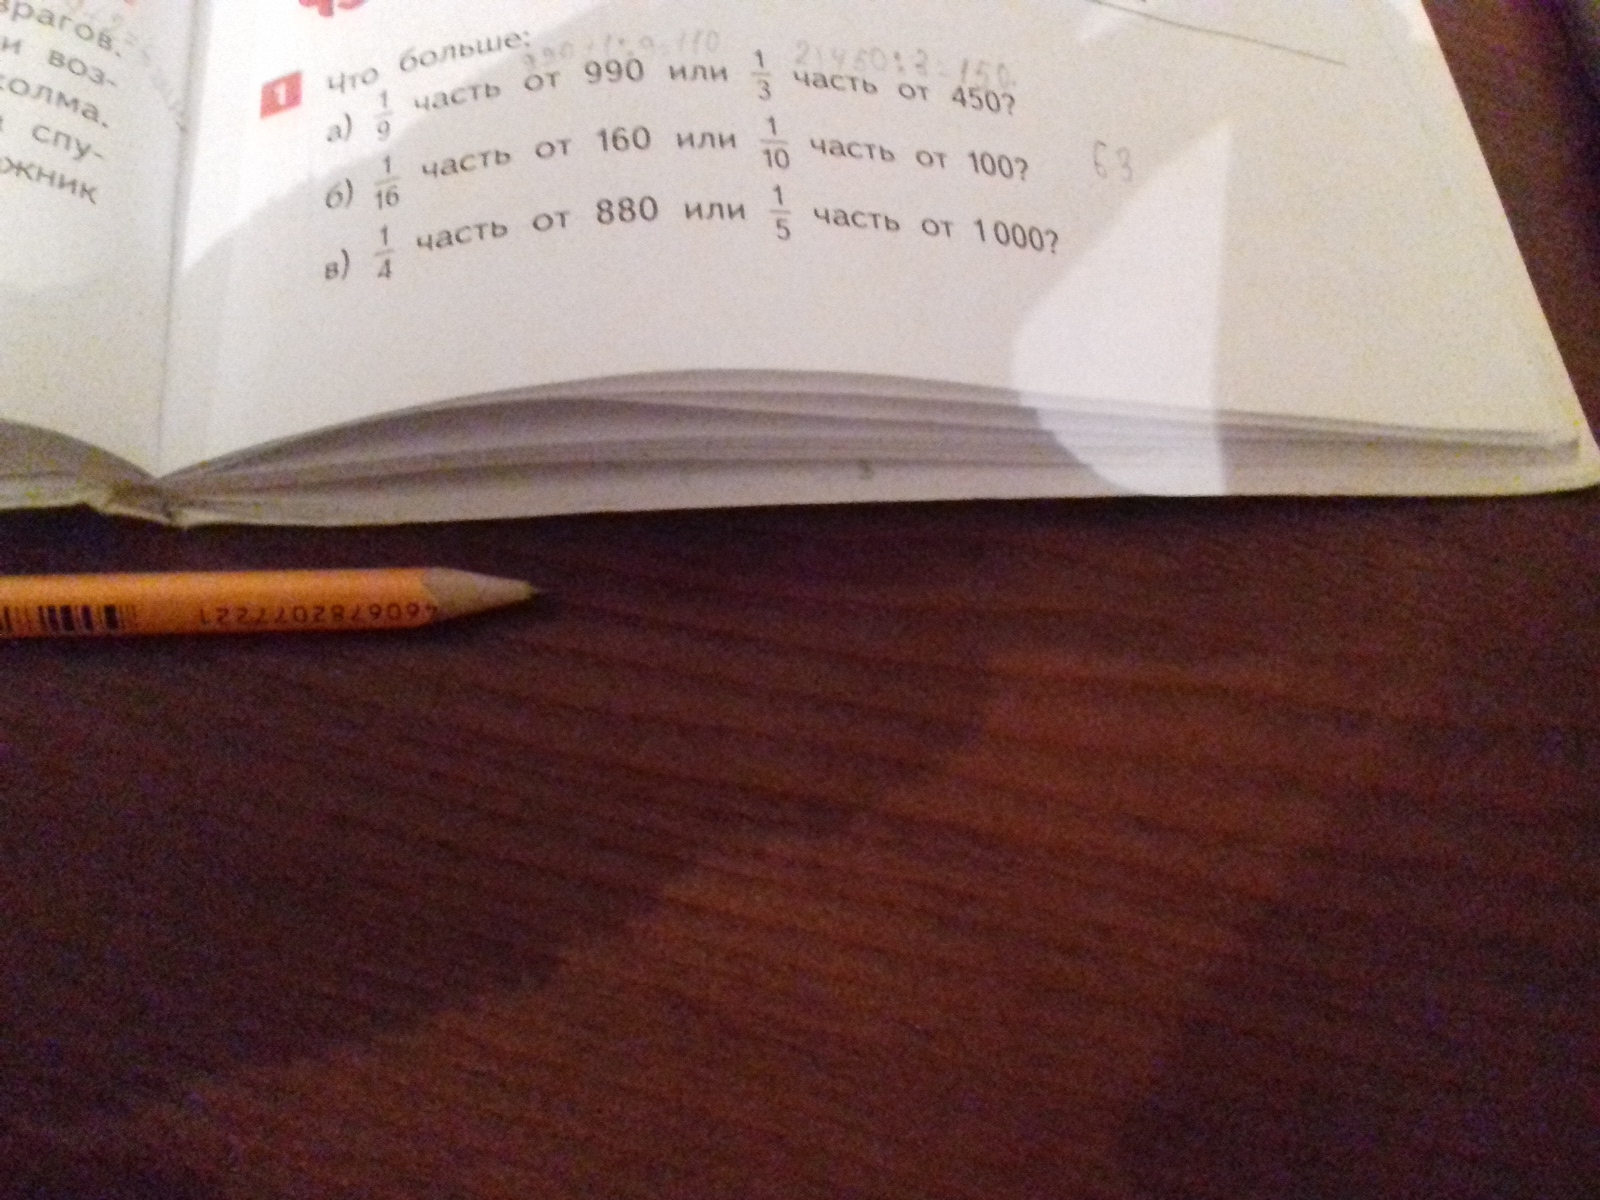 врагов.
и воз-
холма.
спу-
жник
1 Что больше:
990 : 9 = 110 2) 450 : 3 = 150.
а) 1/9 часть от 990 или 1/3 часть от 450?
б) 1/16 часть от 160 или 1/10 часть от 100?
63
в) 1/4 часть от 880 или 1/5 часть от 1000?
4606782077221